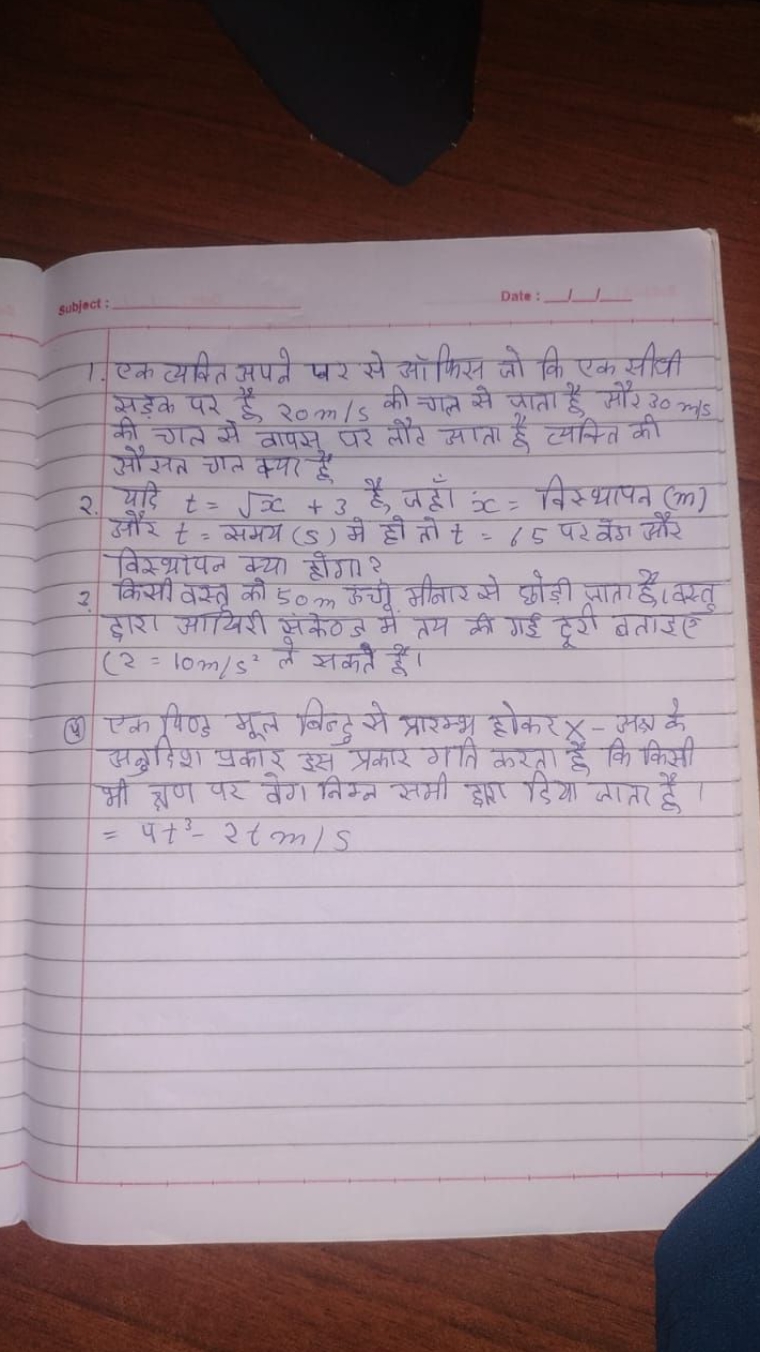 Subject :
Date : __/__/__
1. एक व्यक्ति अपने घर से ऑफिस जो कि एक सीधी
सड़क पर है, 20 m/s की चाल से जाता है और 30 m/s
की चाल से वापस घर लौट आता है व्यक्ति की
औसत चाल क्या है
2. यदि t = √x + 3 है, जहाँ x = विस्थापन (m)
और t = समय (s) मे हो तो t = 6s पर वेग और
विस्थापन क्या होगा?
3. किसी वस्तु को 50m ऊंची मीनार से छोड़ी जाता है। वस्तु
द्वारा आखिरी सेकेण्ड में तय की गई दूरी बताइए
(2 = 10m/s² ले सकते हैं।
(4) एक पिण्ड मूल बिन्दु से प्रारम्भ होकर X - अक्ष के
अनुदिश प्रकार इस प्रकार गति करता है कि किसी
भी क्षण पर वेग निम्न समी द्वारा दिया जाता है।
= 4t³ - 2t m/s